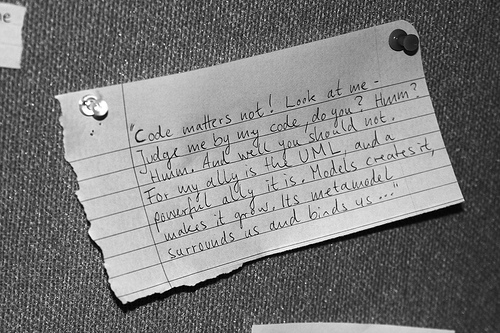 e
"Code matters not! Look at me -
Judge me by my code, do you? Hmm?
Humm. And well you should not.
For my ally is the UML and a
powerful ally it is. Models creates it,
makes it grow. Its metamodel
surrounds us and binds us..."